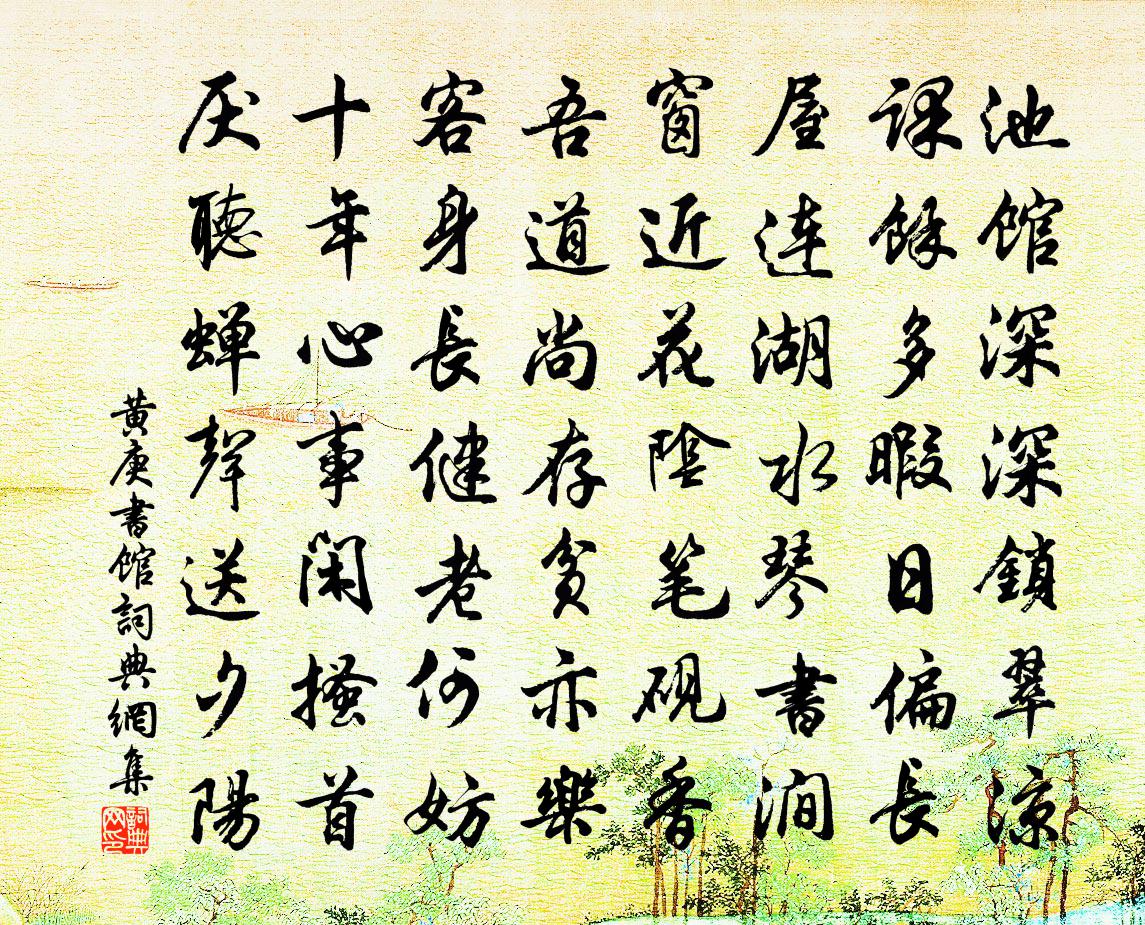 池馆深深鎖翠涼
課餘多暇日偏長
屋連湖水琴書潤
窗近花陰笔硯香
吾道尚存貧亦樂
客身長健老何妨
十年心事閑搔首
厌聴蝉聲送夕陽
黄庚書馆詞典網集
詞典网印